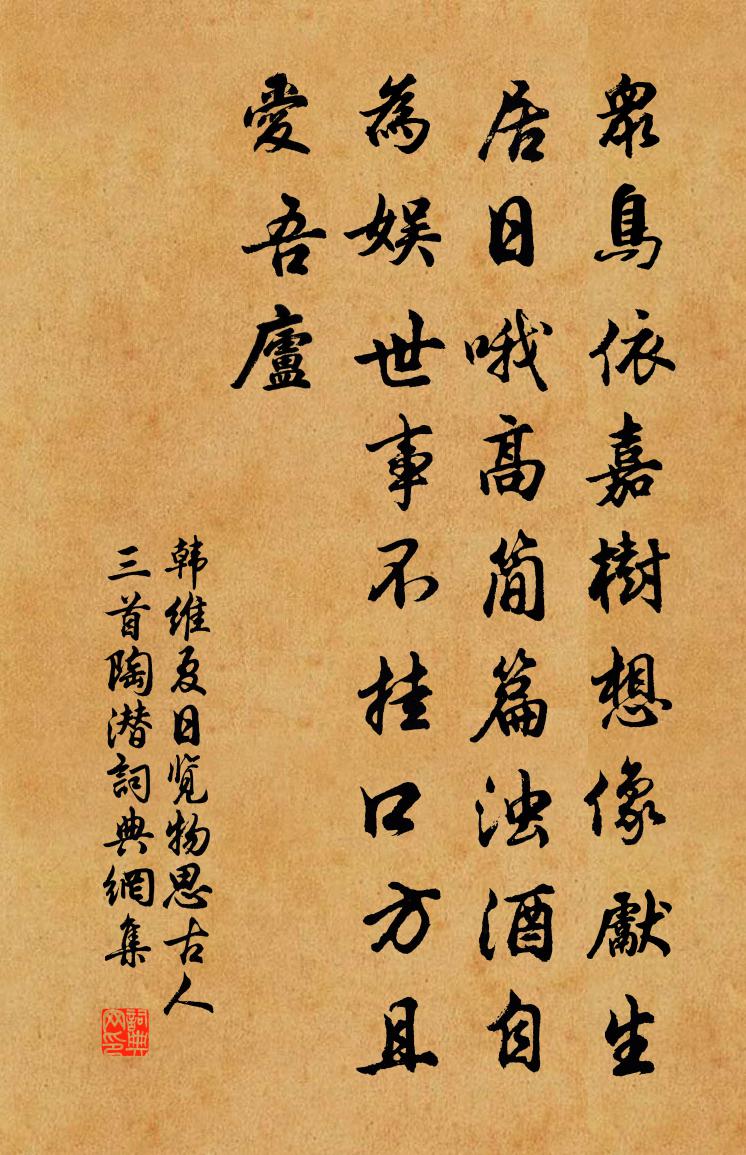 眾鳥依嘉樹想像獻生
居日哦高简篇浊酒自
為娱世事不挂口方且
愛吾廬
韩维夏日览物思古人
三首陶潜詞典網集
詞典网印